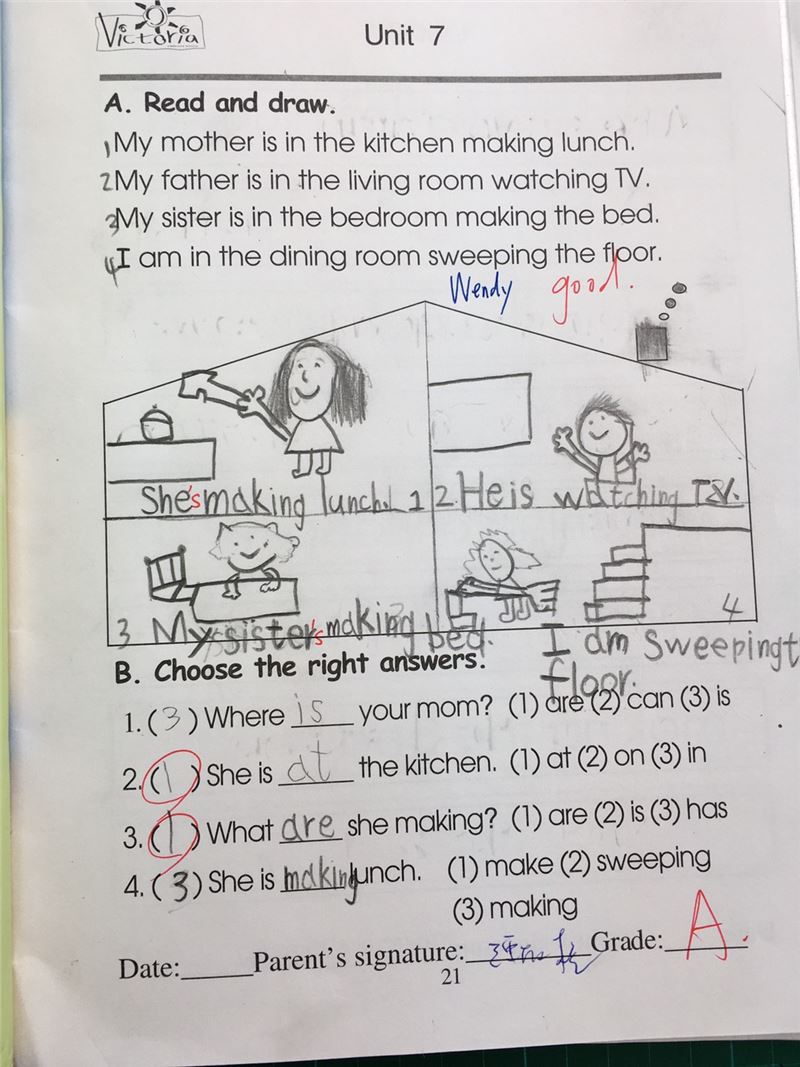 Victoria
Unit 7
A. Read and draw.
1 My mother is in the kitchen making lunch.
2 My father is in the living room watching TV.
3 My sister is in the bedroom making the bed.
4 I am in the dining room sweeping the floor.
Wendy good.
She's making lunch. 1
2. He is watching TV.
3 My sister's making bed.
4
I am sweeping t
floor.
B. Choose the right answers.
1. (3) Where is your mom? (1) are (2) can (3) is
2. (1) She is at the kitchen. (1) at (2) on (3) in
3. (1) What are she making? (1) are (2) is (3) has
4. (3) She is making lunch. (1) make (2) sweeping
(3) making
Date:_____ Parent's signature: Grade: A.
21